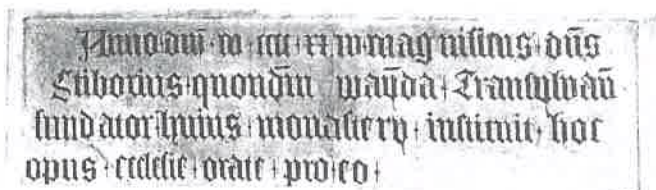 Anno·dm̄·m·cccc·xx·iv·magnificus·dn̄s
Stiborius·quondm̄ wayda·Transylvan̄
fundator·huius·monastery·instituit·hoc
opus·ecclesie·orate·pro·eo·